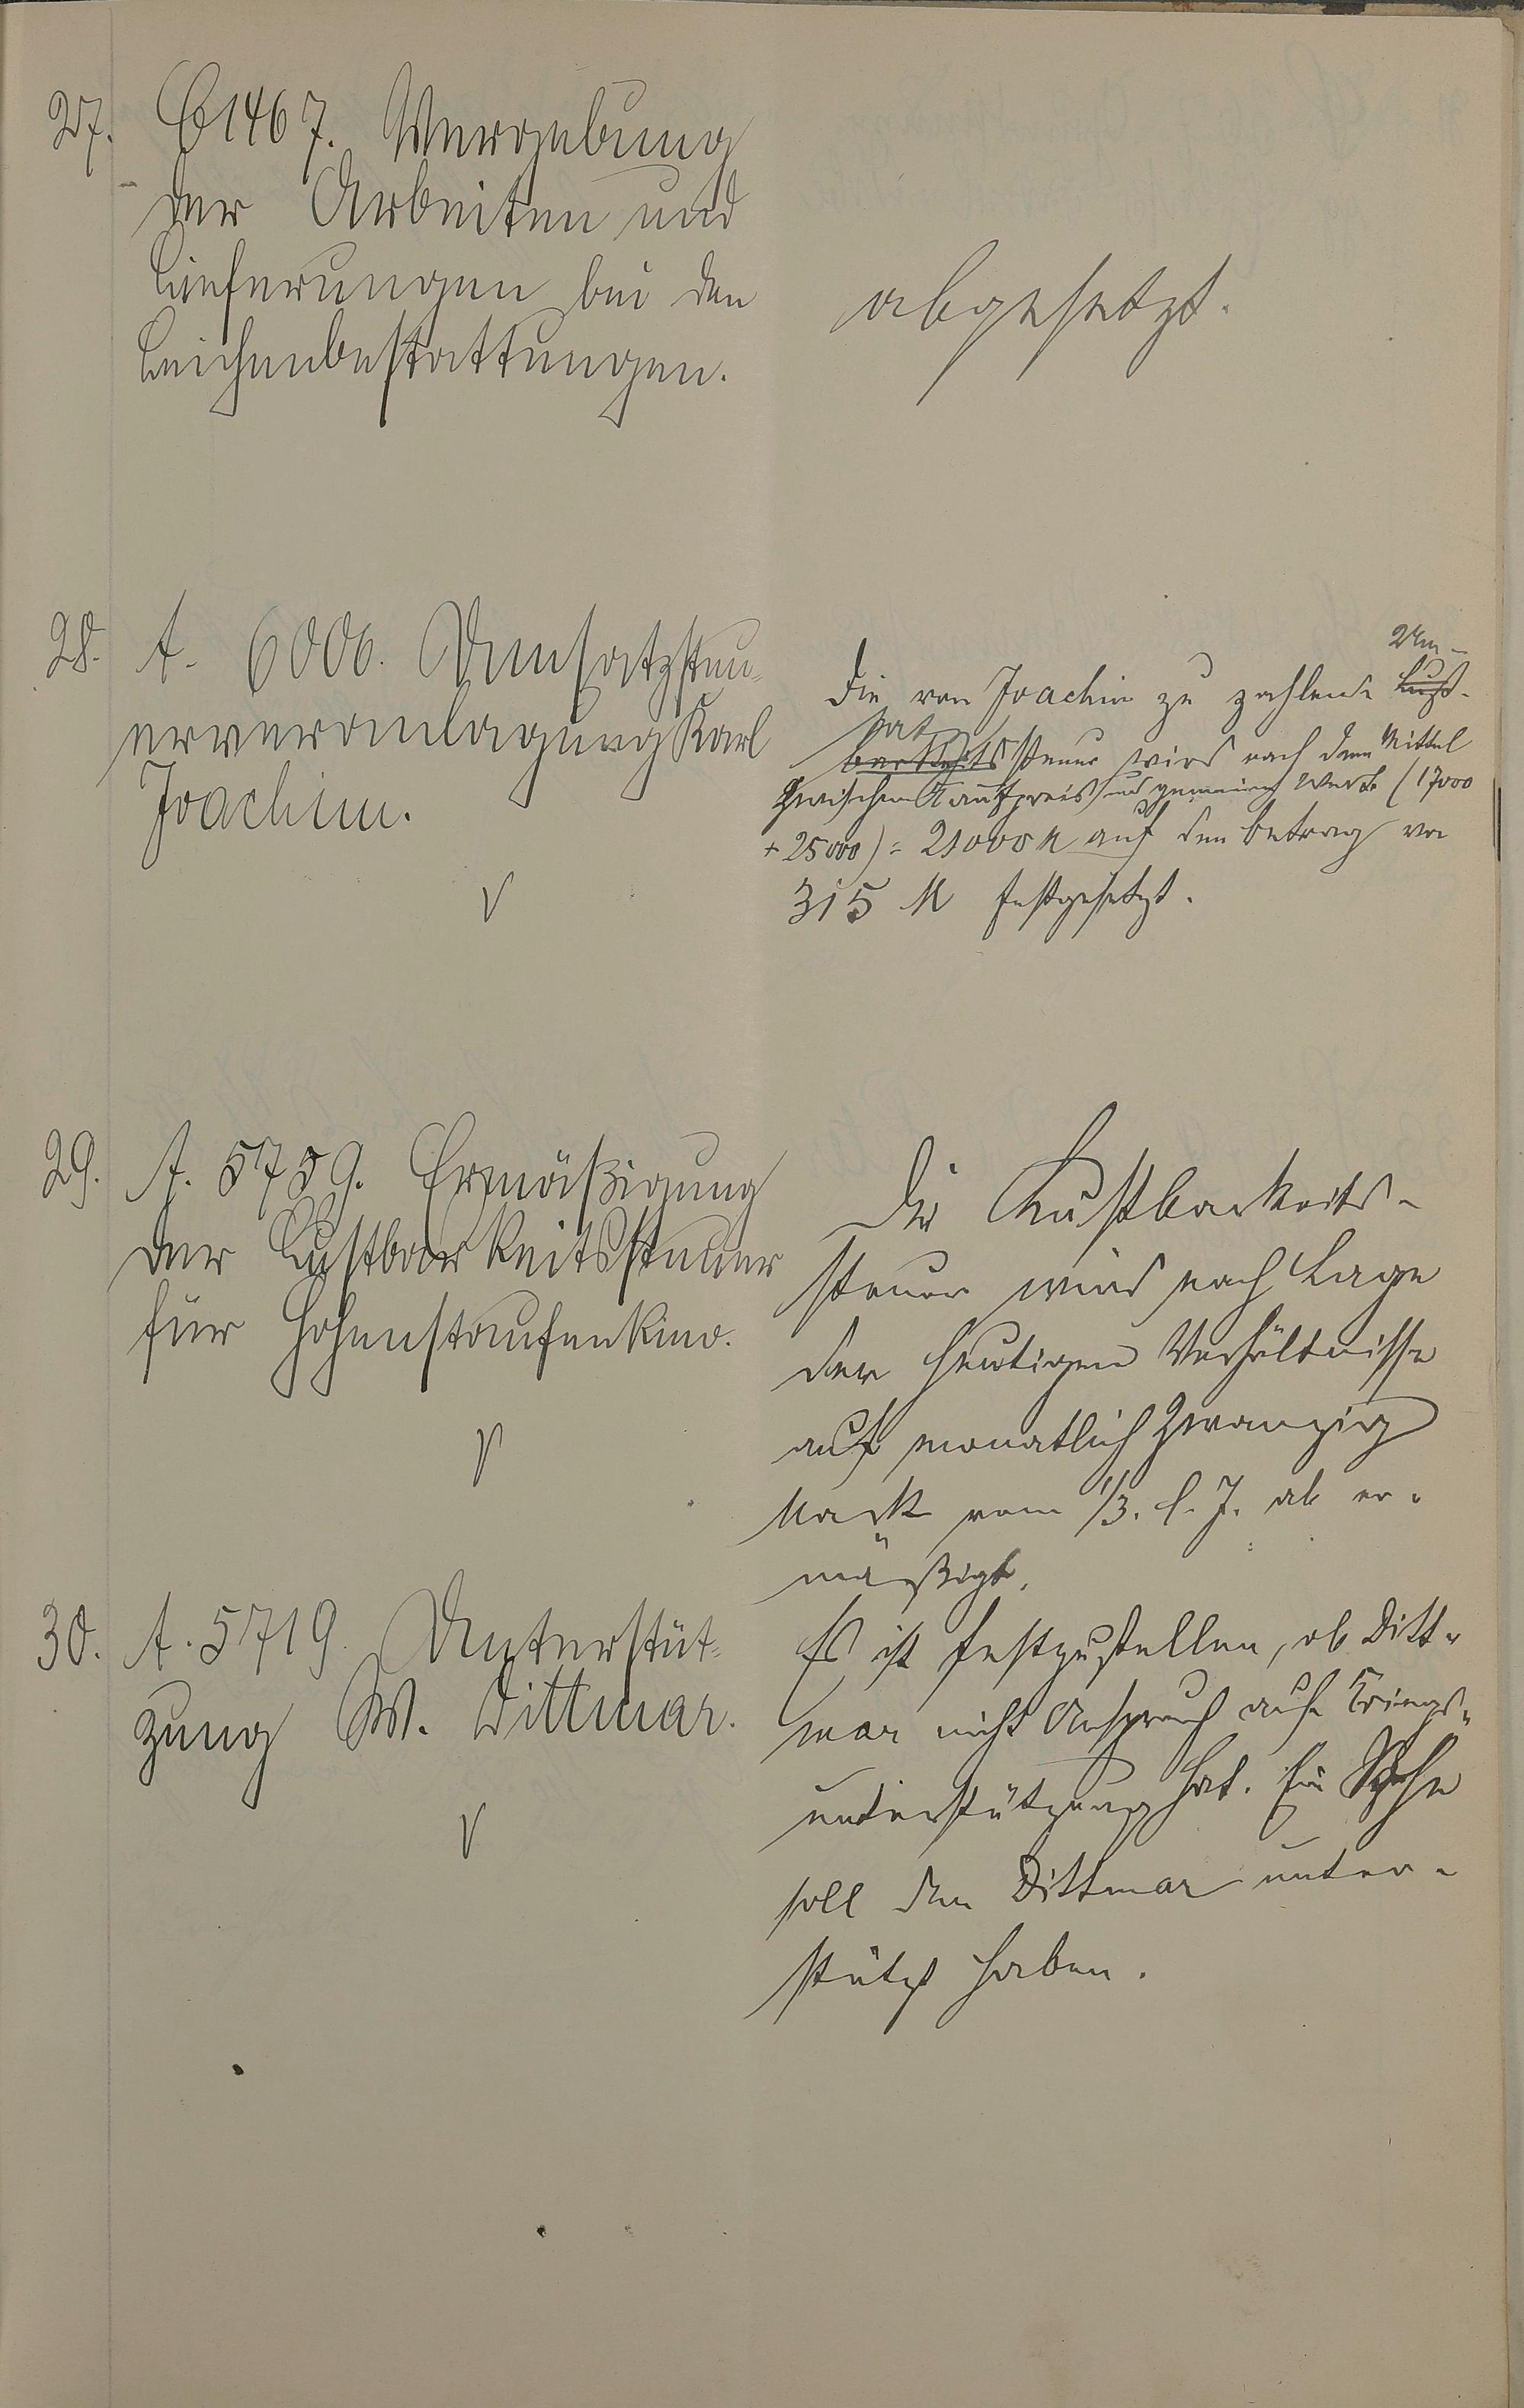 27. C 1467. Vergebung
der Arbeiten und
Lieferungen bei den
Leichenbestattungen.
abgesetzt.
28. A. 6006. Umsatzsteu-
erveranlagung Karl
Joachim.
V
Um-
Die von Joachim zu zahlende Lust-
satz
barkeitssteuer wird nach dem Mittel
zwischen Kaufpreis und gemeinem Werte (17000
+ 25000) = 21000 M auf den Betrag von
315 M festgesetzt.
29. A. 5759. Ermäßigung
der Lustbarkeitssteuer
für Hohenstaufenkino.
V
Die Lustbarkeits-
steuer wird nach Lage
der heutigen Verhältnisse
auf monatlich zwanzig
Mark vom 1/3. l. J. ab er-
mäßigt.
30. A. 5719. Unterstüt-
zung W. Dittmar.
V
Es ist festzustellen, ob Ditt-
mar nicht Anspruch auf Kriegs-
unterstützung hat. Ein Sohn
soll den Dittmar unter-
stützt haben.